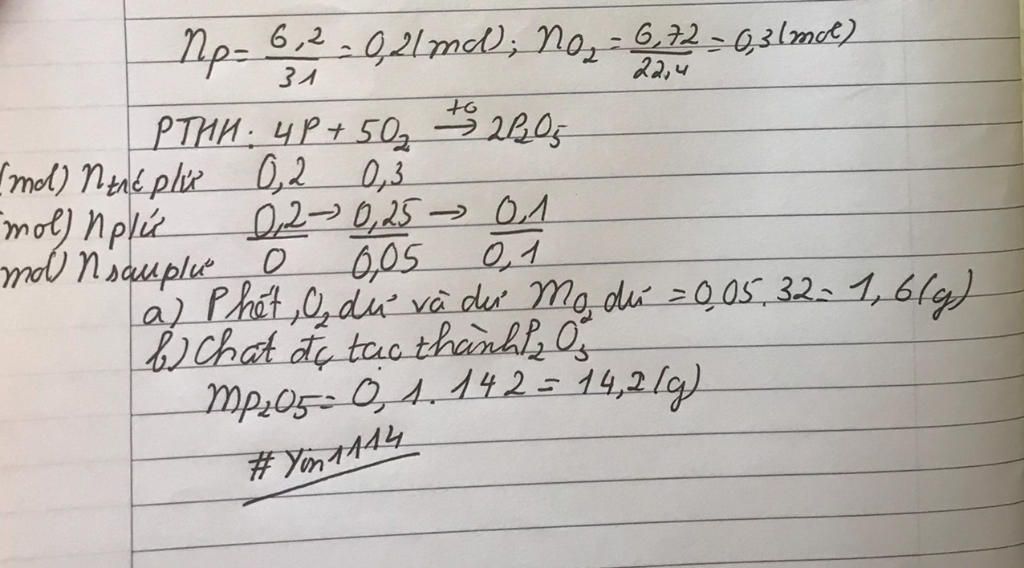 nP = 6,2/31 = 0,2(mol); nO2 = 6,72/22,4 = 0,3(mol)
PTHH: 4P + 5O2 →(t°) 2P2O5
(mol) n trc pứ 0,2 0,3
(mol) n pứ 0,2 → 0,25 → 0,1
(mol) n sau pứ 0 0,05 0,1
a) P hết, O2 dư và dư mO2 dư = 0,05.32 = 1,6(g)
b) Chất đc tạo thành P2O5
mP2O5 = 0,1.142 = 14,2(g)
#Yin1114